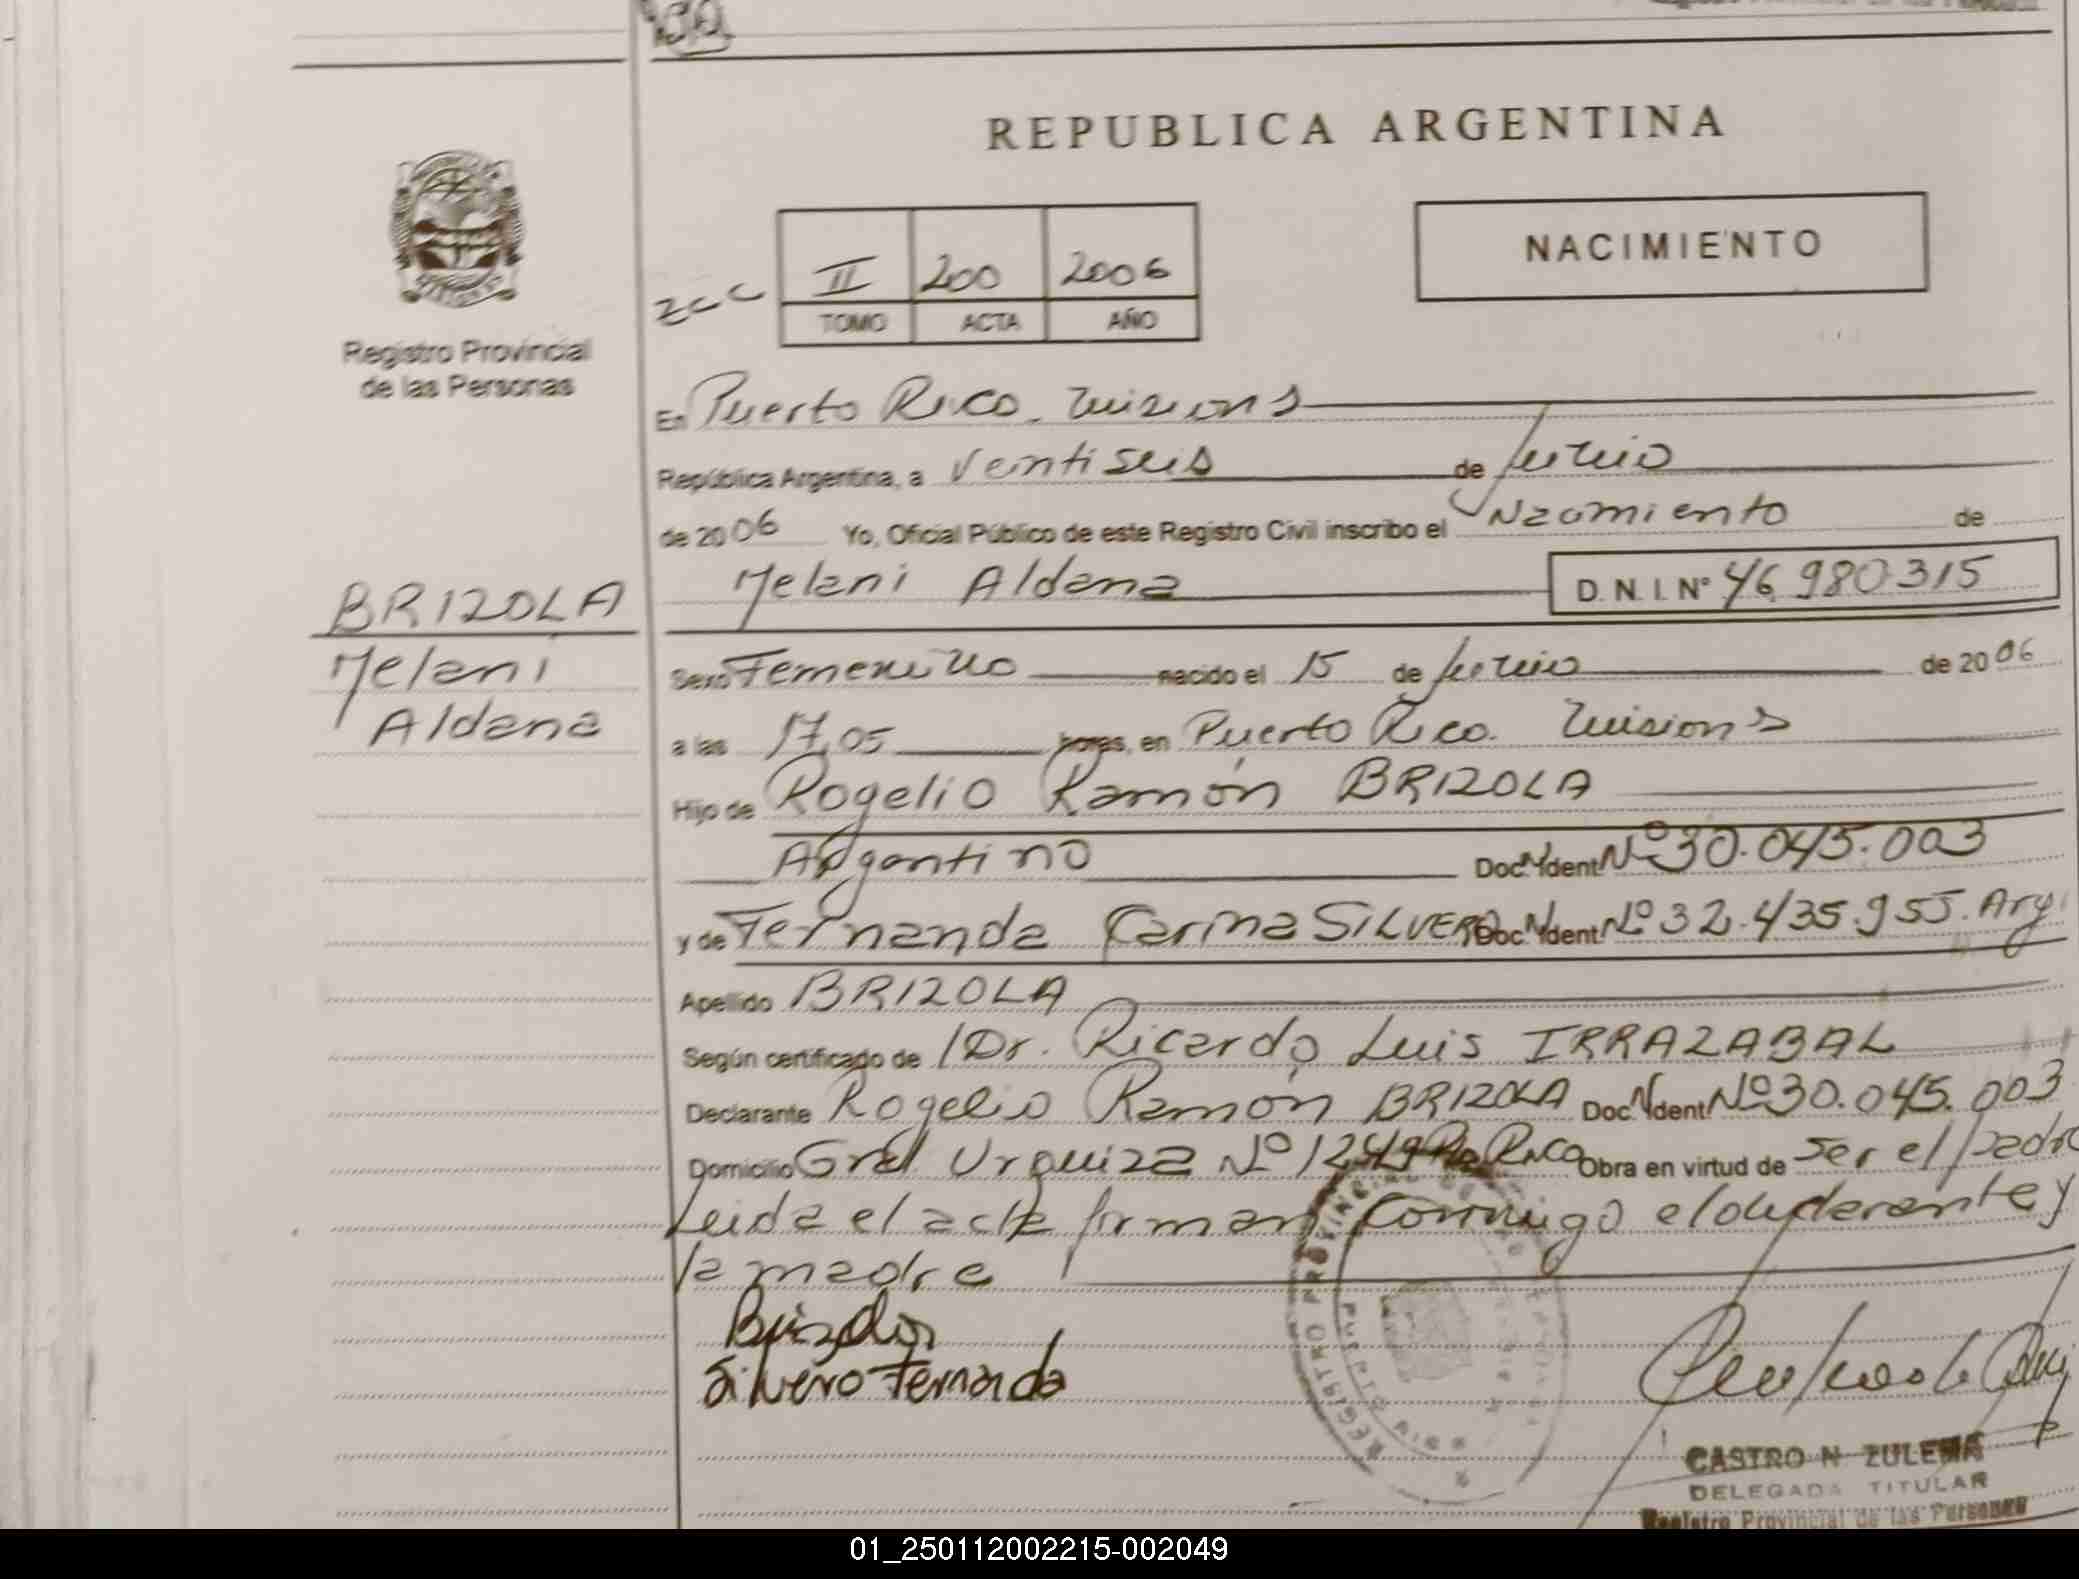 REPUBLICA ARGENTINA
NACIMIENTO
II 200 2006
TOMO ACTA AÑO
Registro Provincial
de las Personas
En Puerto Rico. Misiones
República Argentina, a Veintiseis de Junio
de 2006 Yo, Oficial Público de este Registro Civil inscribo el Nacimiento de
Melani Aldana D.N.I. Nº 46.980.315
BRIZOLA
Melani
Aldana
Sexo Femenino nacido el 15 de Junio de 2006
a las 17,05 horas, en Puerto Rico. Misiones
Hijo de Rogelio Ramón BRIZOLA
Argentino Doc. Ident. Nº 30.045.003
y de Fernanda Carina SILVERO Doc. Ident. Nº 32.435.955. Arg.
Apellido BRIZOLA
Según certificado de Dr. Ricardo Luis IRRAZABAL
Declarante Rogelio Ramón BRIZOLA Doc. Ident. Nº 30.045.003
Domicilio Gral Urquiza Nº 1249 Pto Rico Obra en virtud de Ser el padre
Leida el acta firman conmigo el declarante y
la madre
Brizola
Silvero Fernanda
REGISTRO PROVINCIAL DE LAS
PUERTO RICO
CASTRO N ZULEMA
DELEGADA TITULAR
Registro Provincial de las Personas
01_250112002215-002049